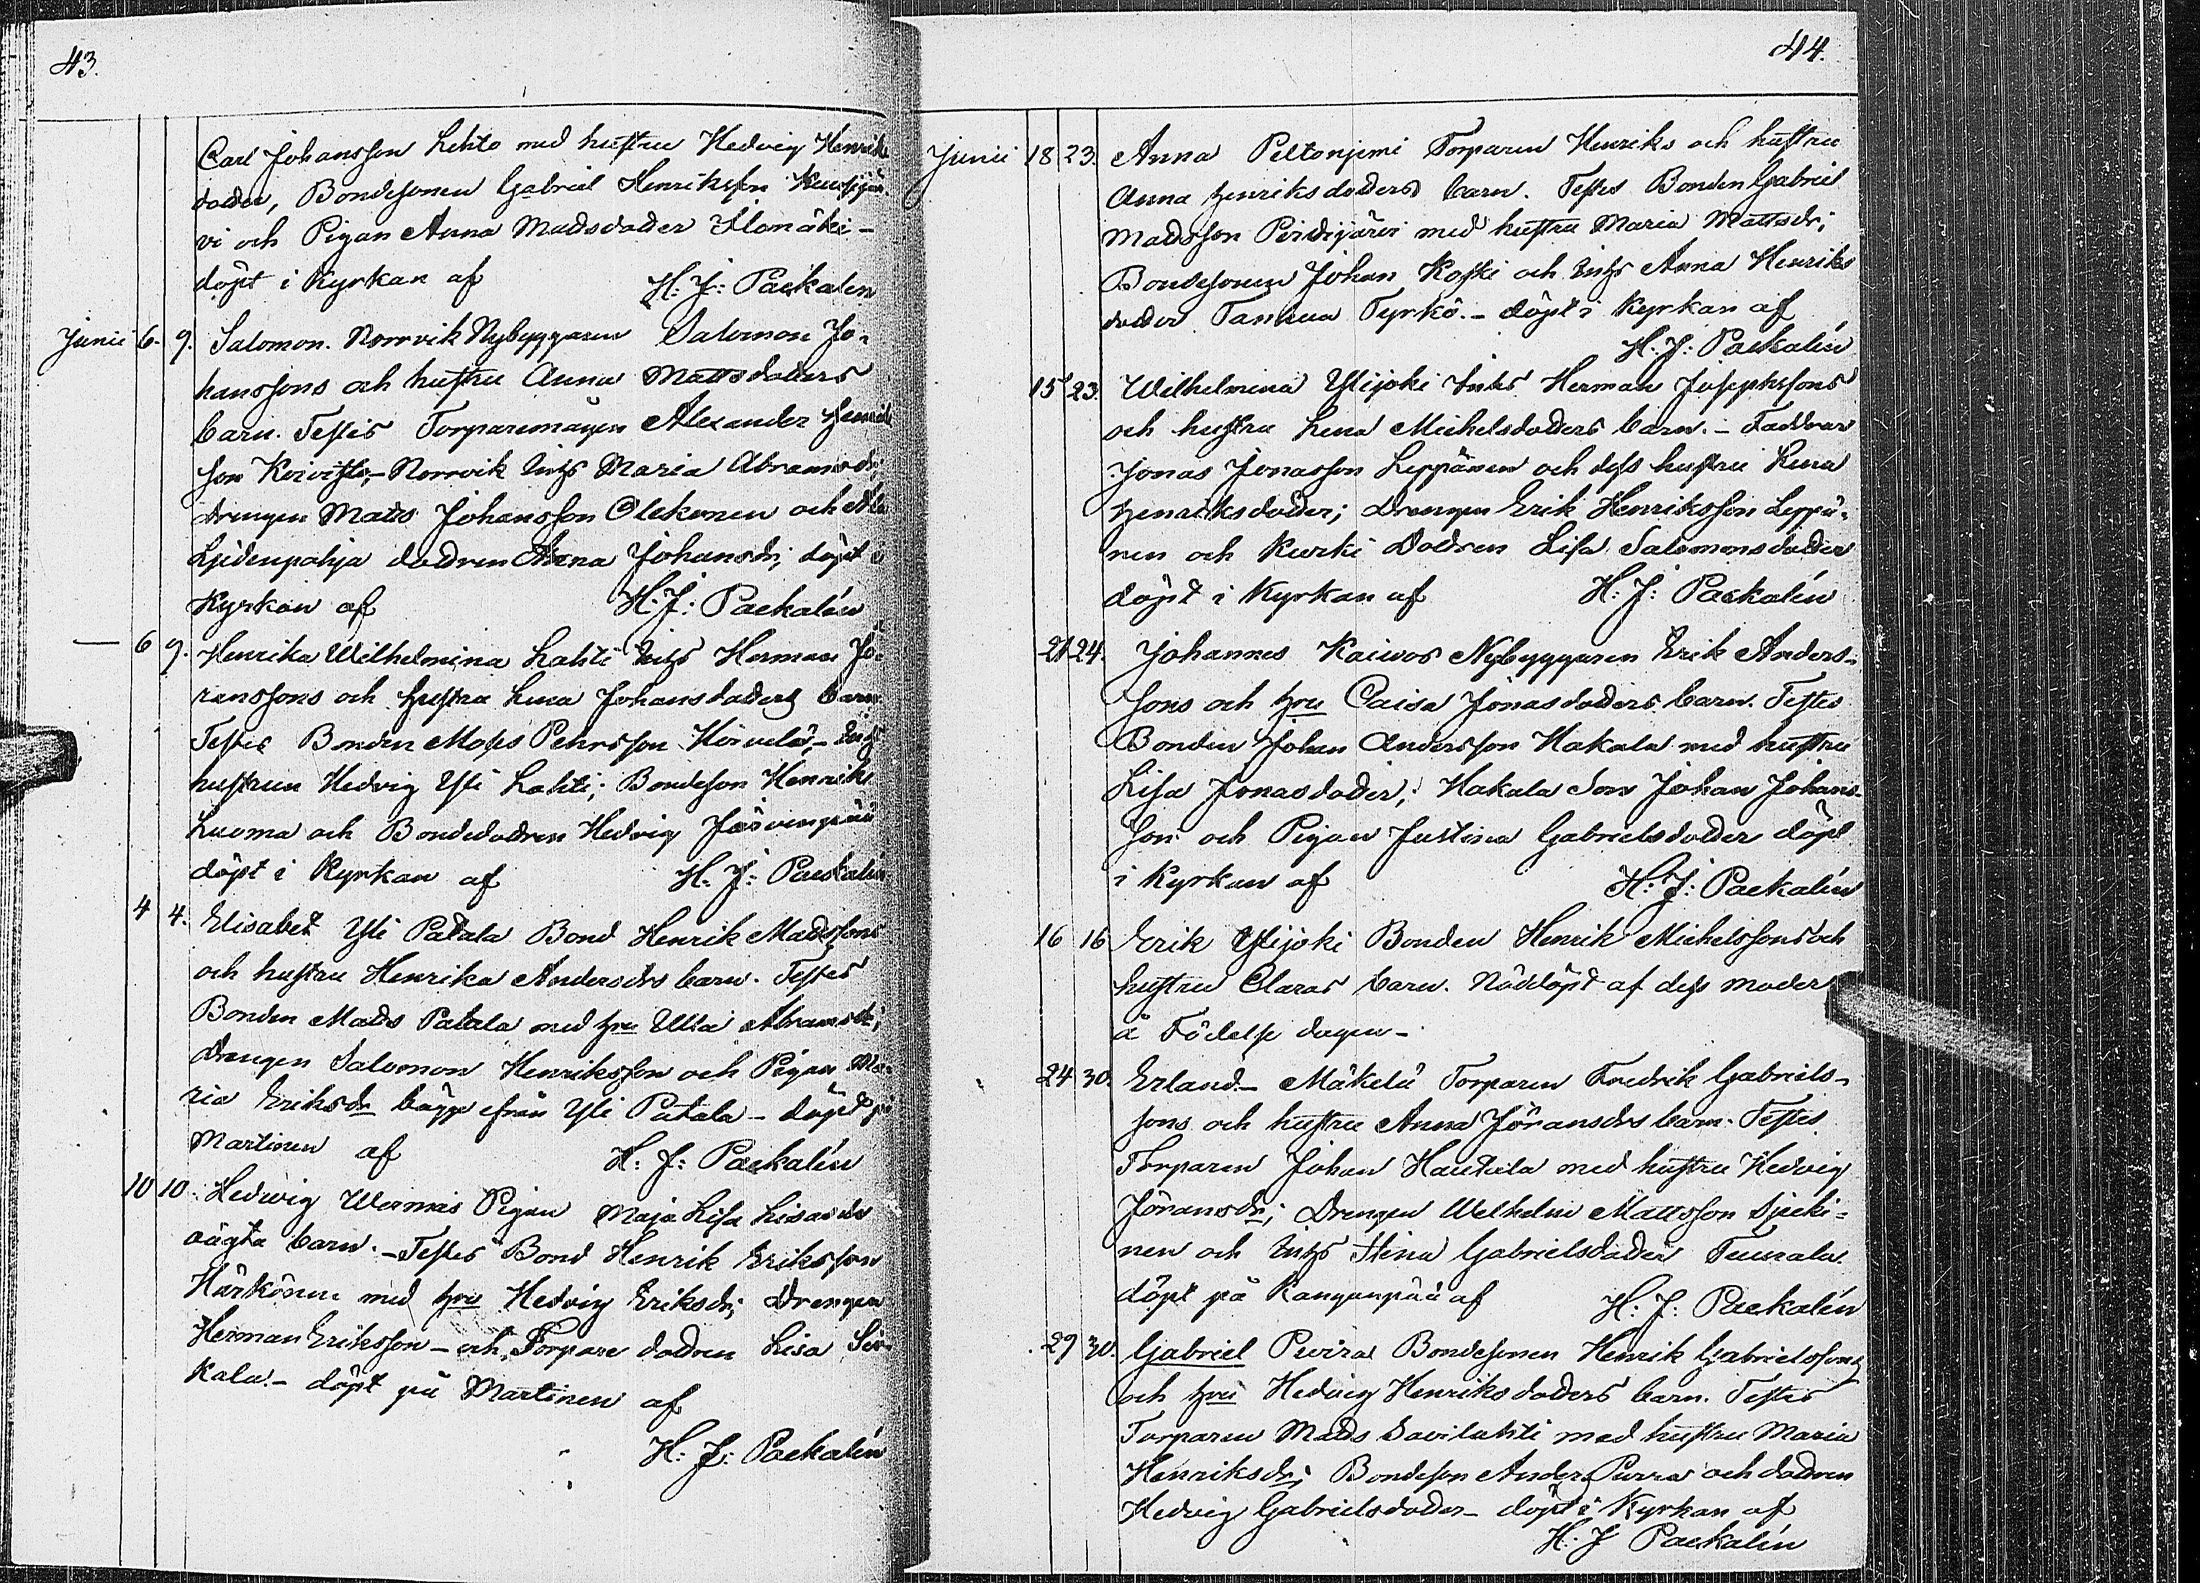 43.
Carl Johansson Lehto med hustru Hedvig Henriks
dotter, Bondesonen Gabriel Henriksson
vi och Pigan Anna Madsdotter Ilomäki –
döpt i Kyrkan af H: J: Paekalén
Junii 6. 9. Salomon. Norrvik Nybyggaren Salomon Jo-
hanssons och hustru Anna Mattsdotters
barn. Testes Torparemågen Alexander Henrik
son Koivisto, – Norrvik Inhs Maria Abramsdr;
Drengen Matts Johansson Olekonen och
dottren Anna Johansdr; döpt i
Kyrkan af H: J: Paekalén
— 6 9. Henrika Wilhelmina Lahti Inhs Herman Jö-
ranssons och hustru Lena Johansdotters barn.
Testes Bonden Moses Pehrsson – Inhs
hustrun Hedvig Yli Lahti; Bondeson Henrik
Luoma och Bondedottren Hedvig Järvenpää
döpt i Kyrkan af H: J: Paekalén
4 4. Elisabet Yli Patala Bond Henrik Madssons
och hustru Henrika Andersdrs barn. Testes
Bonden Mads Patala med hru Ulla Abramsdr;
Drengen Salomon Henriksson och Pigan Ma-
ria Eriksdr bägge från Yli Patala – döpt på
Martinen af H: J: Paekalén
10 10. Hedvig Wermäs Pigan Maja Lisa
oägta barn. – Testes Bond Henrik Eriksson
Härkönen med hru Hedvig Eriksdr; Drengen
Herman Eriksson – och Torpare dottren Lisa Sir-
kala. – döpt på Martinen af
H: J: Paekalén
44.
Junii 18 23. Anna Peltoniemi Torparen Henriks och hustru
Anna Henriksdotters barn. Testes Bonden Gabriel
Madsson med hustru Maria Mattsdr;
Bondesonen Johan Koski och Inhs Anna Henriks
dotter Tyrkö. – döpt i Kyrkan af
H: J: Paekalén
15 23. Wilhelmina Ylijoki Inhs Herman Josephssons
och hustru Lena Michelsdotters barn. – Faddrar
Jonas Jonasson Leppänen och dess hustru Lena
Henriksdotter; Drengen Erik Henriksson Leppä-
nen och Kurki Dottren Lisa Salomonsdotter
döpt i Kyrkan af H: J: Paekalén
21 24. Johannes Kaivos Nybyggaren Erik Anders-
sons och hru Caisa Jonasdotters barn. Testes
Bonden Johan Andersson Hakala med hustru
Lisa Jonasdotter; Hakala Son Johan Johans-
son och Pigan Justina Gabrielsdotter döpt
i Kyrkan af H: J: Paekalén
16 16 Erik Ylijoki Bonden Henrik Michelssons och
hustru Claras barn. Nöddöpt af dess moder
å Födelse dagen –
24 30. Erland. – Mäkelä Torparen Fredrik Gabriels-
sons och hustru Anna Jöransdrs barn. Testes
Torparen Johan Hautala med hustru Hedvig
Jöransdr; Drengen Wilhelm Mattsson
nen och Inhs Stina Gabrielsdotter
döpt på Kanganpää af H: J: Paekalén
29 30. Gabriel Purra Bondesonen Henrik Gabrielssons
och hru Hedvig Henriksdotters barn. Testes
Torparen Mads Savilahti med hustru Maria
Henriksdr; Bondeson Anders Purra och dottren
Hedvig Gabrielsdotter – döpt i Kyrkan af
H: J Paekalén